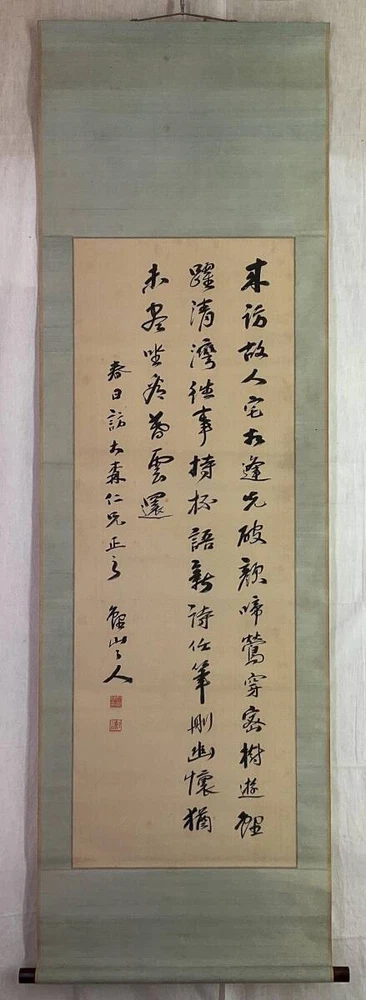 來訪故人宅相逢先破顏啼鶯穿密樹遊鯉
躍清灣往事持杯語新詩任筆刪幽懷猶
未盡坐看暮雲還
春日訪大森仁兄正之 山人